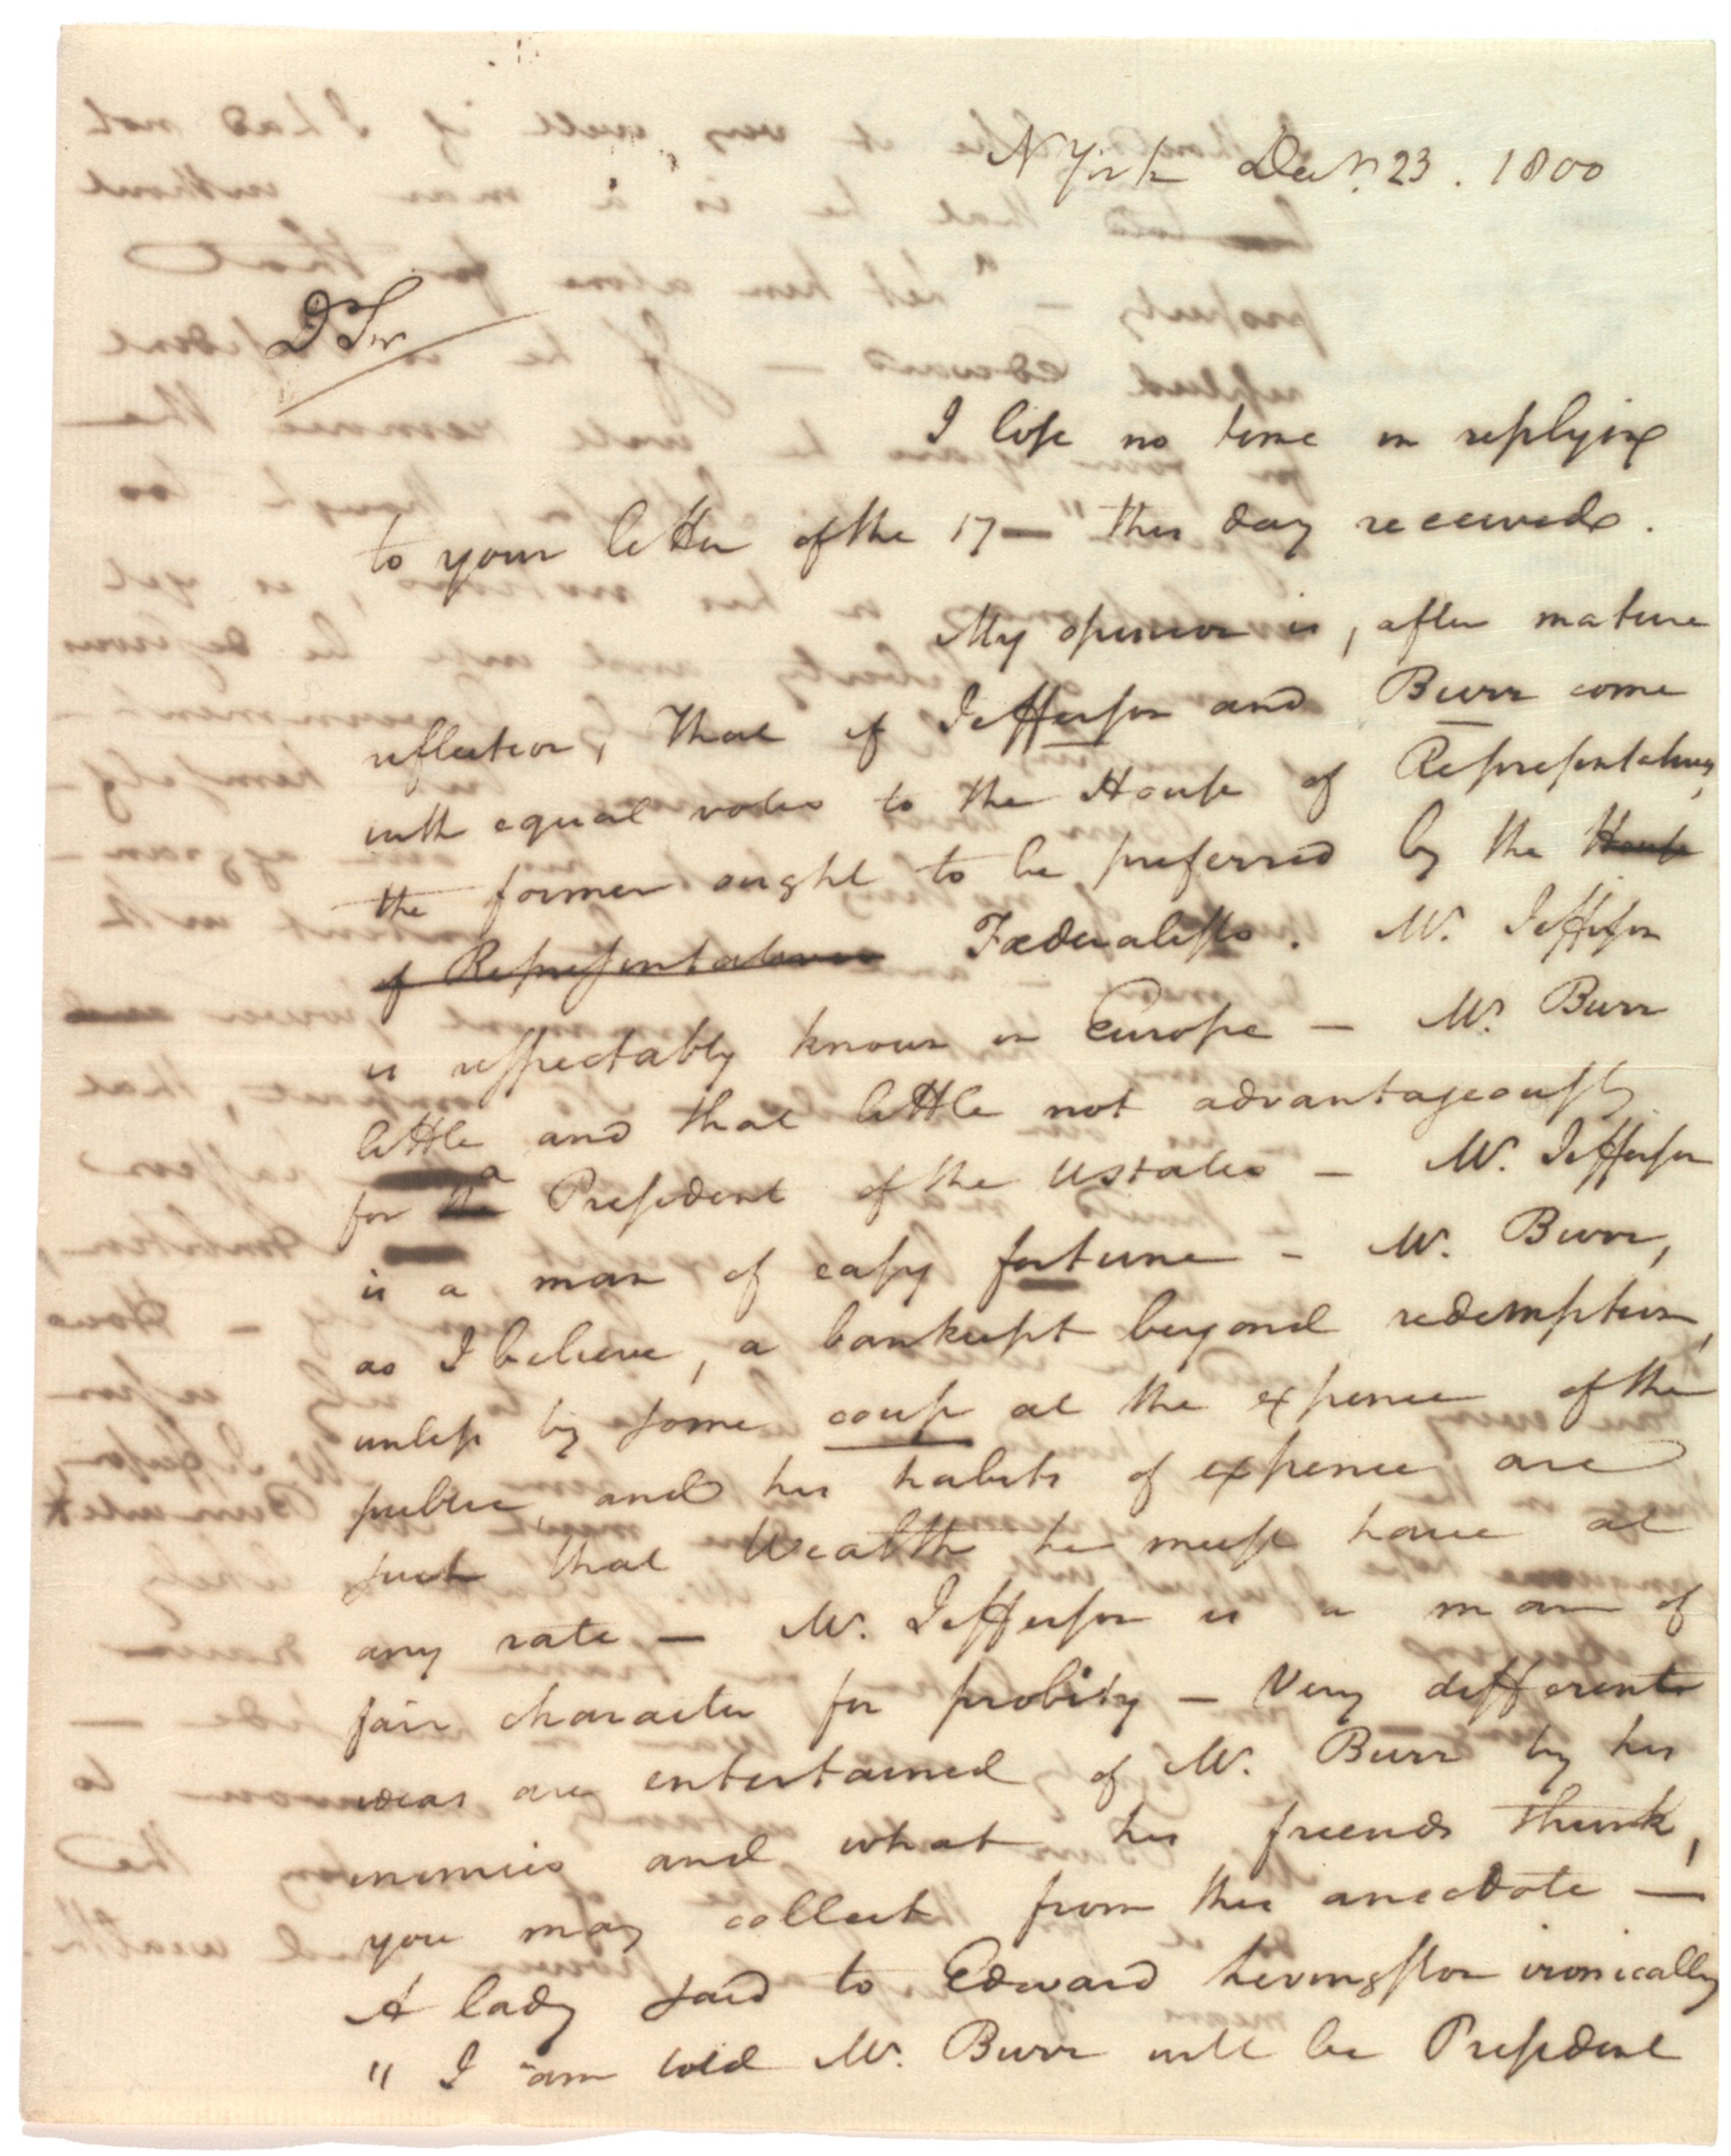 N York Decr. 23. 1800
D Sir
I lose no time in replying
to your letter of the 17— this day received.
My opinion is, after mature
reflection, that if Jefferson and Burr come
with equal votes to the House of Representatives,
the former ought to be preferred by the House
of Representatives Fœderalists. Mr. Jefferson
is respectably known in Europe — Mr. Burr
little and that little not advantageously
for a President of the UStates — Mr. Jefferson
is a man of easy fortune — Mr. Burr,
as I believe, a bankrupt beyond redemption,
unless by some coup at the expence of the
public, and his habits of expence are
such that Wealth he must have at
any rate — Mr. Jefferson is a man of
fair character for probity — Very different
ideas are entertained of Mr. Burr by his
enemies and what his friends think,
you may collect from this anecdote —
A lady said to Edward Livingston ironically
"I am told Mr. Burr will be President